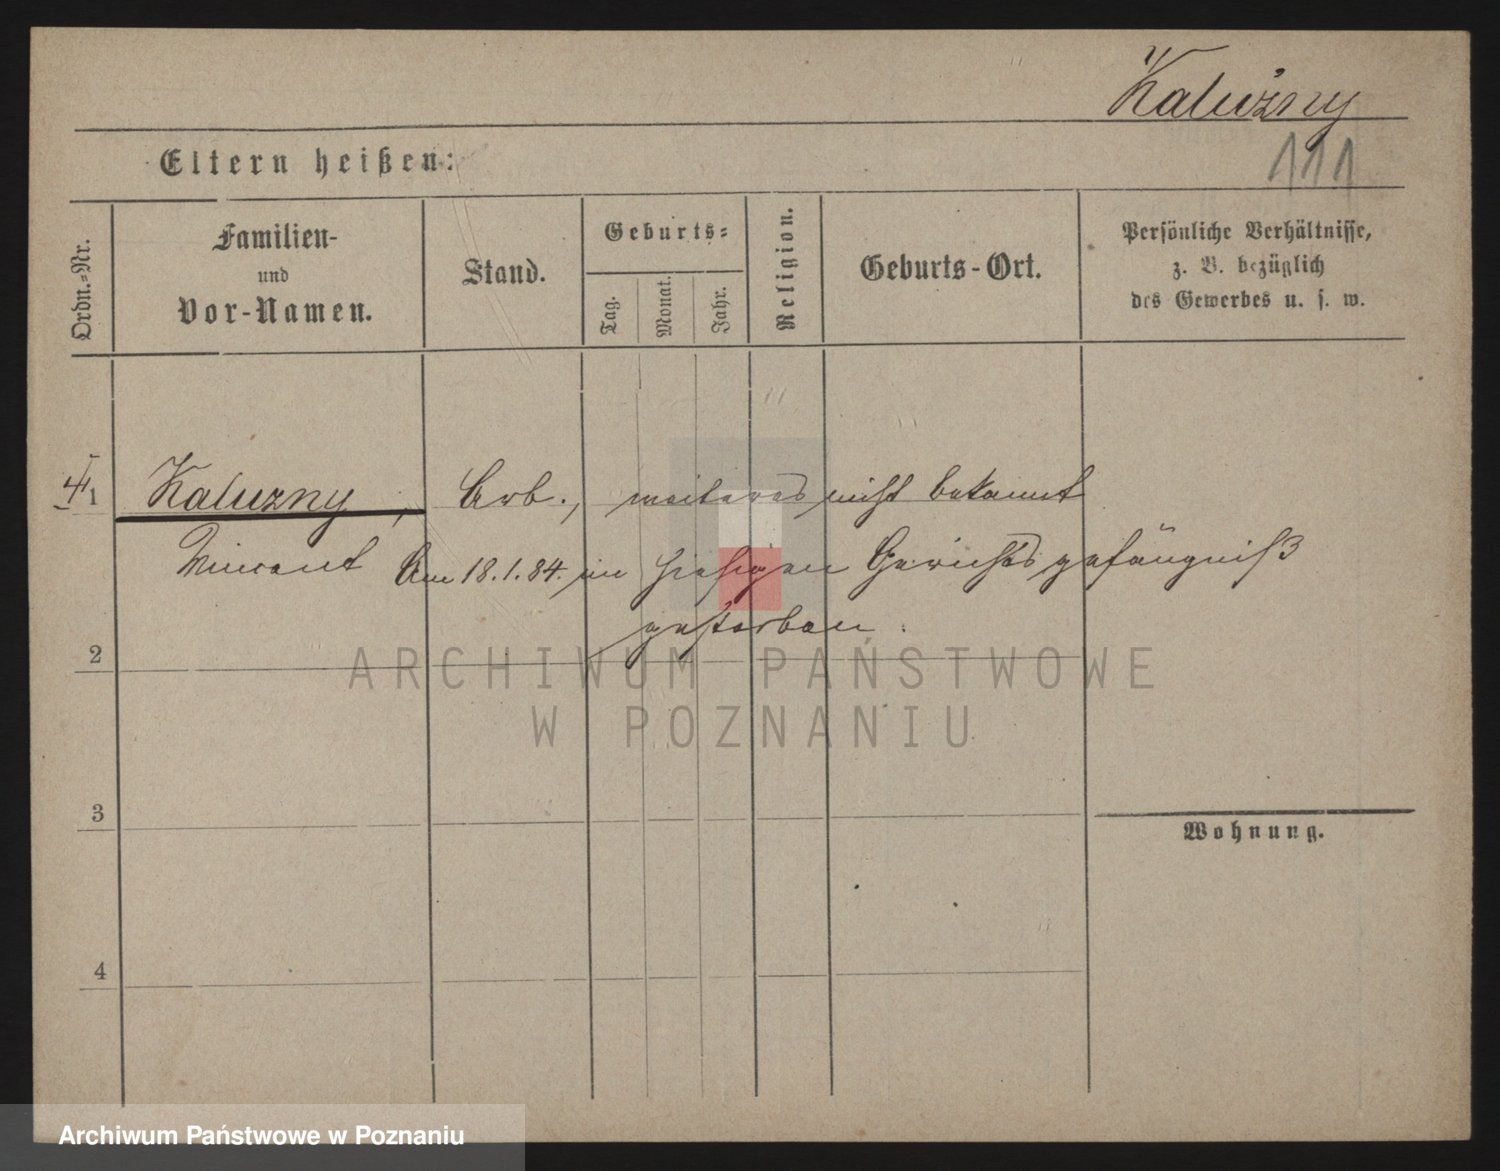 Kaluźny
111
Eltern heißen:
Ordn.-Nr.
Familien-
und
Vor-Namen.
Stand.
Geburts-
Tag.
Monat.
Jahr.
Religion.
Geburts-Ort.
Persönliche Verhältnisse,
z. B. bezüglich
des Gewerbes u. s. w.
1 Kaluzny, Arb., weiteres nicht bekannt
Vincent Am 18.1.84. im hiesigen Gerichtsgefängniß
gestorben.
2
ARCHIWUM PAŃSTWOWE
W POZNANIU
3
Wohnung.
4
Archiwum Państwowe w Poznaniu